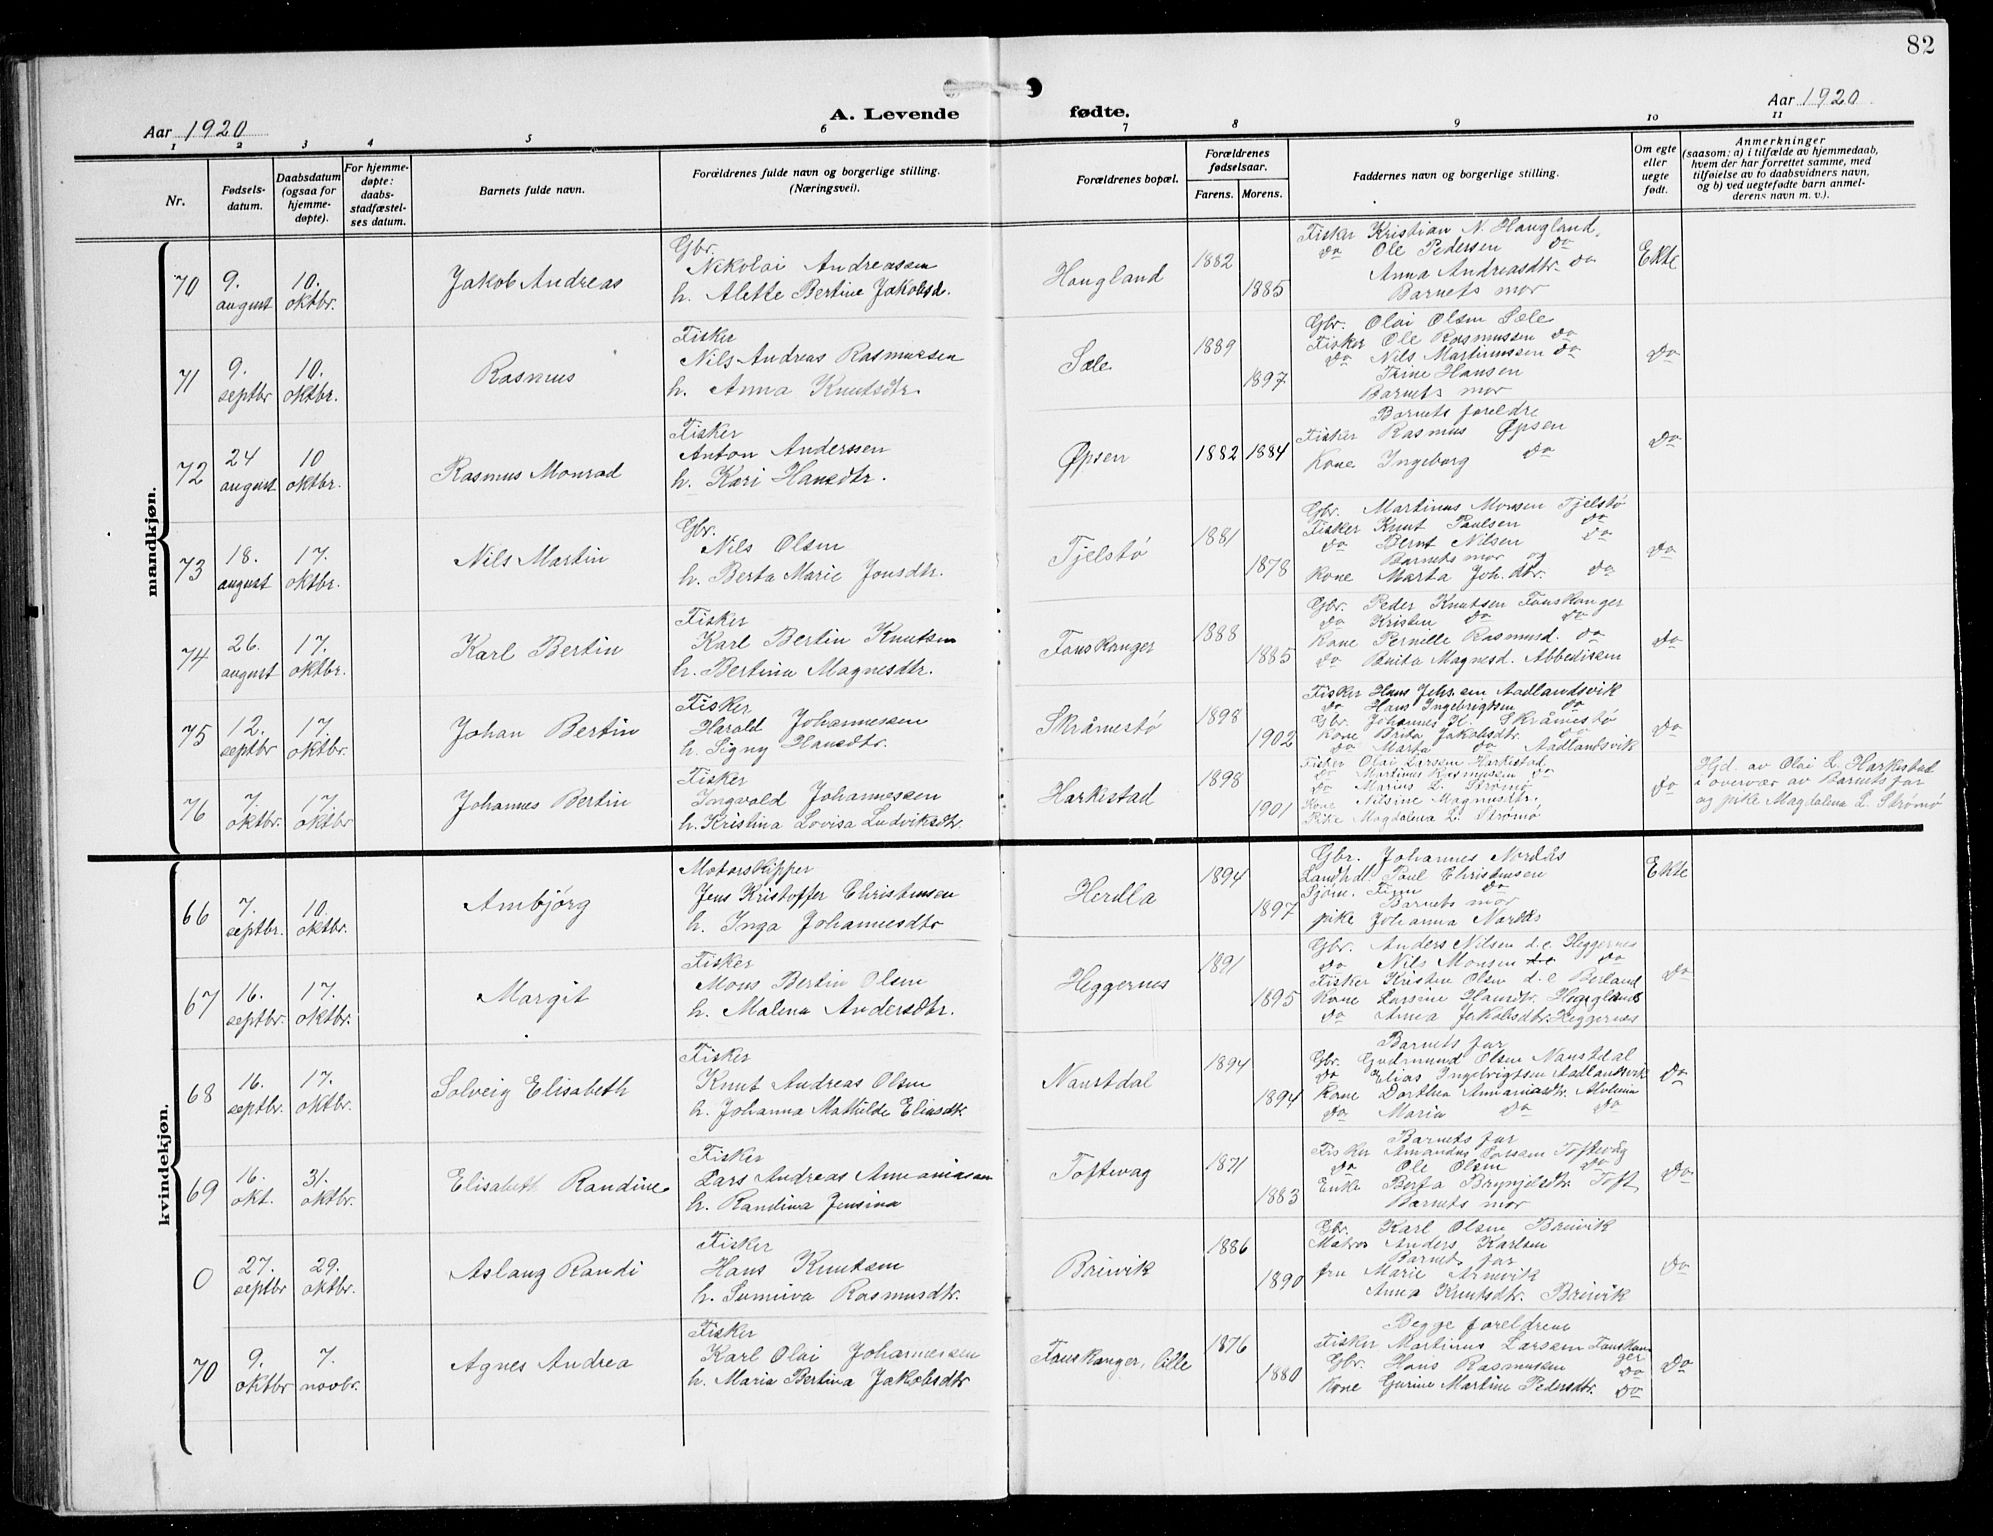 82
A. Levende fødte.
Aar 1920
Aar 1920
1 2 3 4 5 6 7 8 9 10 11
Nr.
Fødsels-
datum.
Daabsdatum
(ogsaa for
hjemme-
døpte).
For hjemme-
døpte:
daabs-
stadfæstel-
ses datum.
Barnets fulde navn.
Forældrenes fulde navn og borgerlige stilling.
(Næringsvei).
Forældrenes bopæl.
Forældrenes
fødselsaar.
Farens. Morens.
Faddernes navn og borgerlige stilling.
Om egte
eller
uegte
født.
Anmerkninger
(saasom: a) i tilfælde av hjemmedaab,
hvem der har forrettet samme, med
tilføielse av to daabsvidners navn,
og b) ved uegtefødte barn anmel-
derens navn m. v.).
mandkjøn.
70
9.
august
10.
oktbr.
Jakob Andreas
Gbr.
Nikolai Andreassen
h. Alette Bertine Jakobsd.
Haugland
1882
1885
Fisker Kristian N. Haugland,
do Ole Pedersen do
Anna Andreasdtr. do
Barnets mor
Ekte
71
9.
septbr
10.
oktbr.
Rasmus
Fisker
Nils Andreas Rasmussen
h. Anna Knutsdtr.
Sæle
1889
1897
Gbr. Olai Olsen Sæle
Fisker Ole Rasmussen do
do Nils Martinussen do
Trine Hansen
Barnets mor
do
72
24
august
10
oktbr.
Rasmus Monrad
Fisker
Anton Anderssen
h. Kari Hansdtr.
Øpsen
1882 1884
Barnets foreldre
Fisker Rasmus Øpsen
Kone Ingeborg do
do
73
18.
august
17.
oktbr.
Nils Martin
Gbr.
Nils Olsen
h. Berta Marie Jonsdtr.
Tjelstø
1881
1878
Gbr. Martinus Monsen Tjelstø
Fisker Knut Paulsen do
do Bernt Nilsen do
Barnets mor og
Kone Marta Joh. dtr. do
do
74
26.
august
17.
oktbr.
Karl Bertin
Fisker
Karl Bertin Knutsen
h. Bertina Magnesdtr.
Fauskanger
1888
1885
Gbr. Peder Knutsen Fauskanger
do Kristen do do
Kone Pernille Rasmusd. do
do Brita Magnesd. Abbedissen
do
75
12.
septbr
17.
oktbr.
Johan Bertin
Fisker
Harald Johannessen
h. Signy Hansdtr.
Skråmestø
1898
1902
Fisker Hans Johs.sen Aadlandsvik
do Hans Ingebrigtsen do
Gbr. Johannes H. Skråmestø
Kone Brita Jakobsdtr. do
do Marta do Aadlandsvik
do
76
7.
oktbr.
17.
oktbr
Johannes Bertin
Fisker
Ingvald Johannessen
h. Kristina Lovisa Ludviksdtr.
Harkestad
1898
1901
Fisker Olai Larsen Harkestad
do Martinus Rasmussen do
do Marius L. Strømø
Kone Nilsine Magnusdtr.
Pike Magdalena L. Strømø
do
Hjd. av Olai L. Harkestad
i overvær av Barnets far
og pike Magdalena L. Strømø
kvindekjøn.
66
7.
septbr.
10.
oktbr.
Ambjørg
Motorskipper
Jens Kristoffer Christensen
h. Inga Johannesdtr
Herdla
1894
1897
Gbr. Johannes Nordås
Landhdl. Paul Christensen
Sjøm. Finn do
Barnets mor
pike Johanna Nordås
Ekte
67
16.
septbr.
17.
oktbr.
Margit
Fisker
Mons Bertin Olsen
h. Malena Andersdtr.
Heggernes
1891
1895
Gbr. Anders Nilsen d.e. Heggernes
do Nils Monsen do
Fisker Kristen Olsen d.e Berland
Kone Larsine Hansdtr.
do Anna Jakobsdtr. Heggernes
do
68
16.
septbr.
17.
oktbr.
Solveig Elisabeth
Fisker
Knut Andreas Olsen
h. Johanna Mathilde Eliasdtr.
Naustdal
1894
1894
Barnets far
Gbr. Gudmund Olsen Naustdal
do Elias Ingebrigtsen Aadlandsvik
Kone Dorthea Annaniasdtr.
do Maria do do
do
69
16.
okt.
31.
oktbr.
Elisabeth Randine
Fisker
Lars Andreas Annaniassen
h. Randina Jensina
Toftevag
1871
1883
Barnets far
Fisker Amandus Larsen Toftevåg
do Ole Olsen do
Enke Berta Brynjelsdtr. Toft
Barnets mor
do
0
27.
septbr
29.
oktbr.
Aslaug Randi
Fisker
Hans Knutsen
h. Sunniva Rasmusdtr.
Breivik
1886
1890
Gbr. Karl Olsen Breivik
Matros Anders Karlsen
Barnets far
fru Marie Arnevik
Anna Knutsdtr. Breivik
do
70
9.
oktbr
7.
novbr.
Agnes Andrea
Fisker
Karl Olai Johannessen
h. Maria Bertina Jakobsdtr
Fauskanger, lille
1876
1880
Begge foreldrene
Fisker Martinus Larsen Fauskanger
Gbr. Hans Rasmussen do
Kone Gurine Martine Pedersdtr. do
do